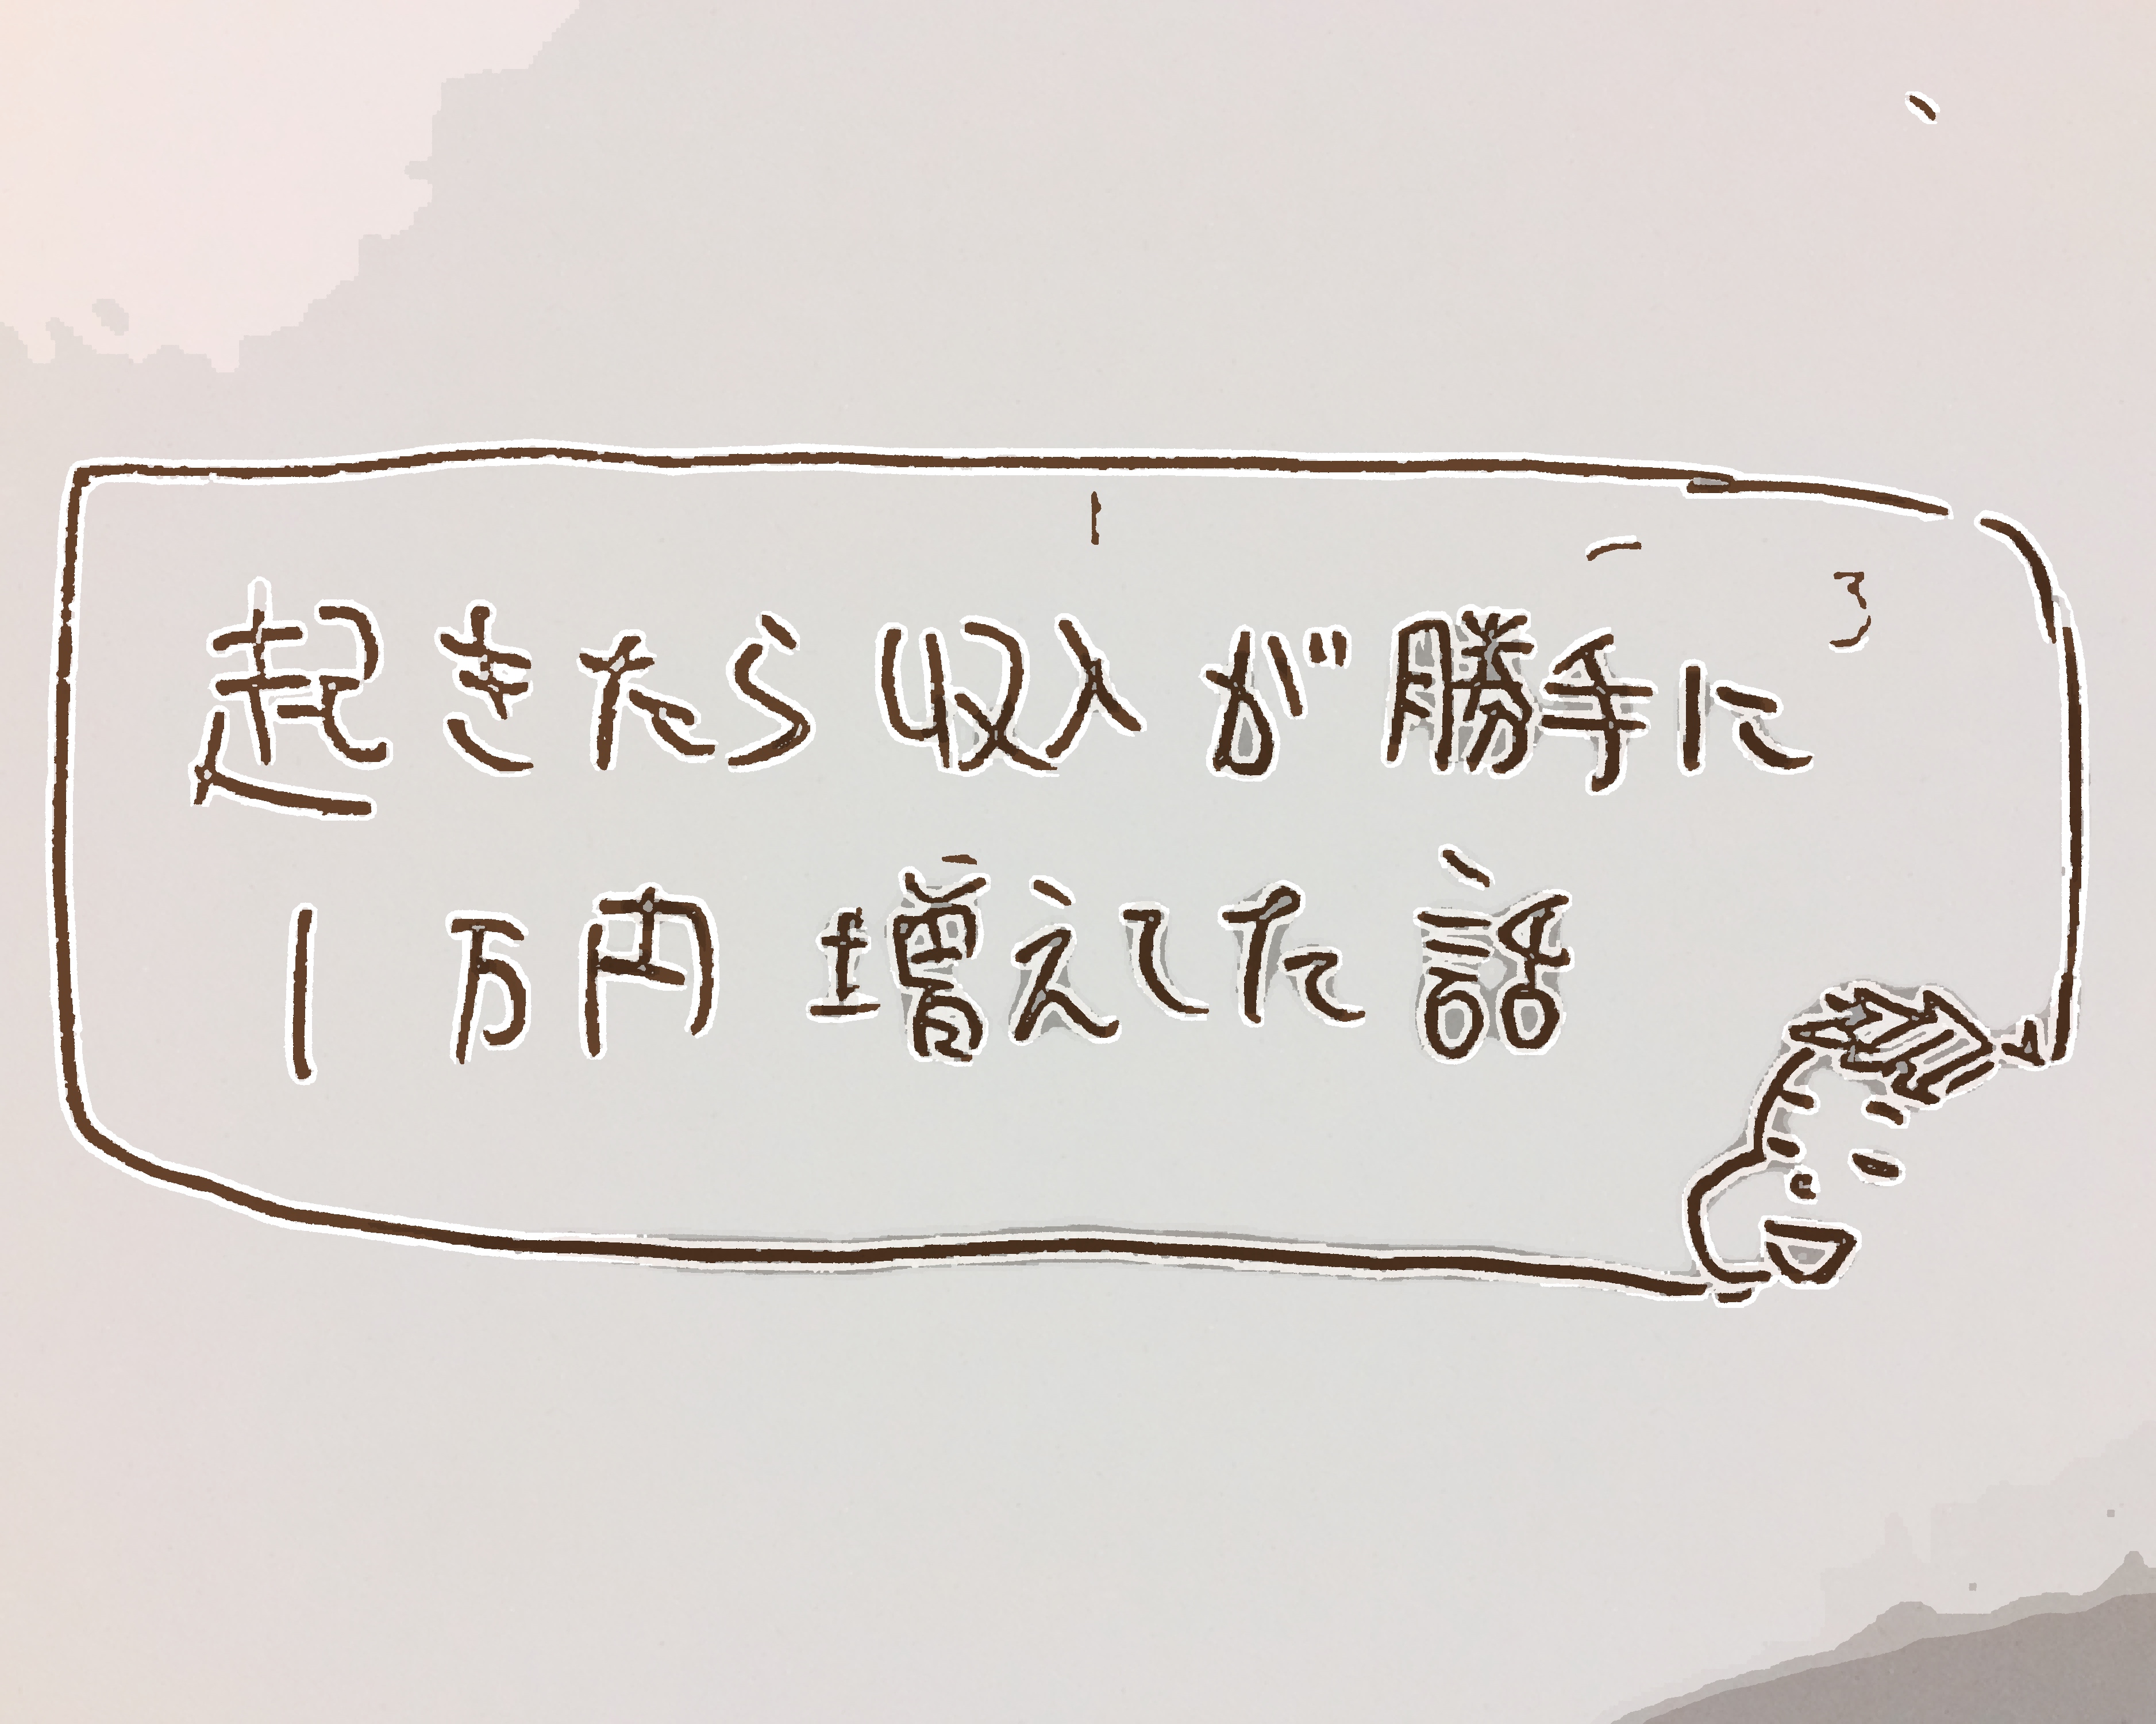 起きたら収入が勝手に
1万円増えてた話